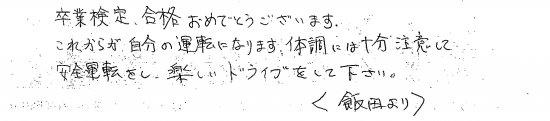 卒業検定、合格おめでとうございます。
これからが自分の運転になります。体調には十分注意して
安全運転をし、楽しいドライブをして下さい。
<飯田より>